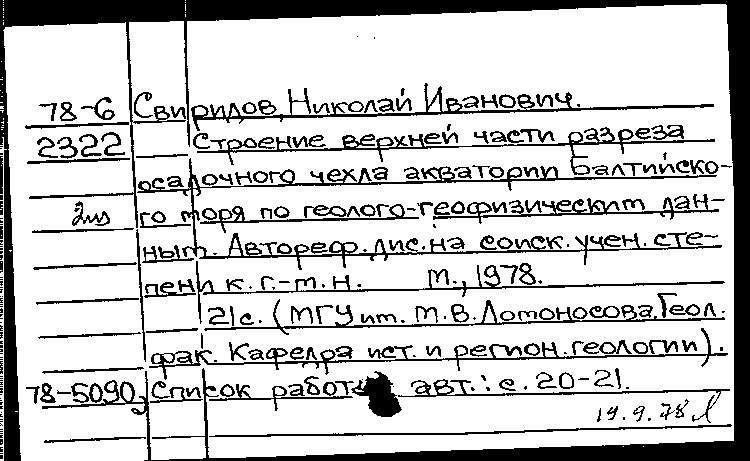 78-6 Свиридов, Николай Иванович.
2322 Строение верхней части разреза
осадочного чехла акватории Балтийско-
2из го моря по геолого-геофизическим дан-
ным. Автореф. дис. на соиск. учен. сте-
пени к. г.-м. н. М., 1978.
21с. (МГУ им. М.В. Ломоносова. Геол.
фак. Кафедра ист. и регион. геологии).
78-5090 Список работ авт.: с. 20-21.
19.9.78